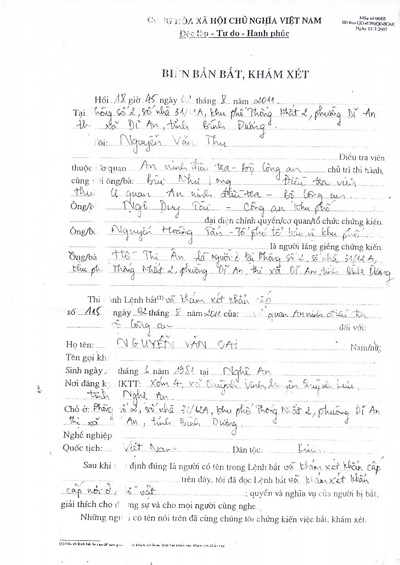 CỘNG HÒA XÃ HỘI CHỦ NGHĨA VIỆT NAM
Độc lập - Tự do - Hạnh phúc
BIÊN BẢN BẮT, KHÁM XÉT
Hồi 18 giờ 45 ngày tháng 8 năm 2011
Tại Phòng số 2, số nhà 31/12A, khu phố Thống Nhất 2, phường Dĩ An
thị xã Dĩ An, tỉnh Bình Dương.
Tôi: Nguyễn Văn Thu
Điều tra viên
thuộc cơ quan An ninh điều tra - Bộ Công an chủ trì thi hành,
cùng với ông/bà: Bùi Như Long Điều tra viên
thuộc cơ quan An ninh điều tra - Bộ Công an
Ông/bà Ngô Duy Tôi - Công an khu phố
đại diện chính quyền/cơ quan/tổ chức chứng kiến.
Ông/bà Nguyễn Hoàng Tấn - Tổ phó tổ bảo vệ khu phố
là người láng giềng chứng kiến.
Ông/bà Hồ Thị Ân là người ở tại Phòng số 2, số nhà 31/12A,
khu phố Thống Nhất 2, phường Dĩ An, thị xã Dĩ An, tỉnh Bình Dương
Thi hành Lệnh bắt(1) và khám xét khẩn cấp
số 115 ngày 02 tháng 8 năm 2011 của Cơ quan An ninh điều tra
Bộ Công an đối với:
Họ tên: NGUYỄN VĂN OAI Nam/nữ:
Tên gọi khác
Sinh ngày tháng 1 năm 1981 tại Nghệ An
Nơi đăng ký HKTT: Xóm 4, xã Quỳnh Vinh, huyện Quỳnh Lưu,
tỉnh Nghệ An.
Chỗ ở: Phòng số 2, số nhà 31/12A, khu phố Thống Nhất 2, phường Dĩ An
thị xã Dĩ An, tỉnh Bình Dương
Nghề nghiệp
Quốc tịch: Việt Nam Dân tộc: Kinh
Sau khi xác định đúng là người có tên trong Lệnh bắt và khám xét khẩn cấp
trên đây, tôi đã đọc Lệnh bắt và khám xét khẩn
cấp nơi ở, đồ vật ; quyền và nghĩa vụ của người bị bắt;
giải thích cho đương sự và cho mọi người cùng nghe
Những người có tên nói trên đã cùng chúng tôi chứng kiến việc bắt, khám xét.